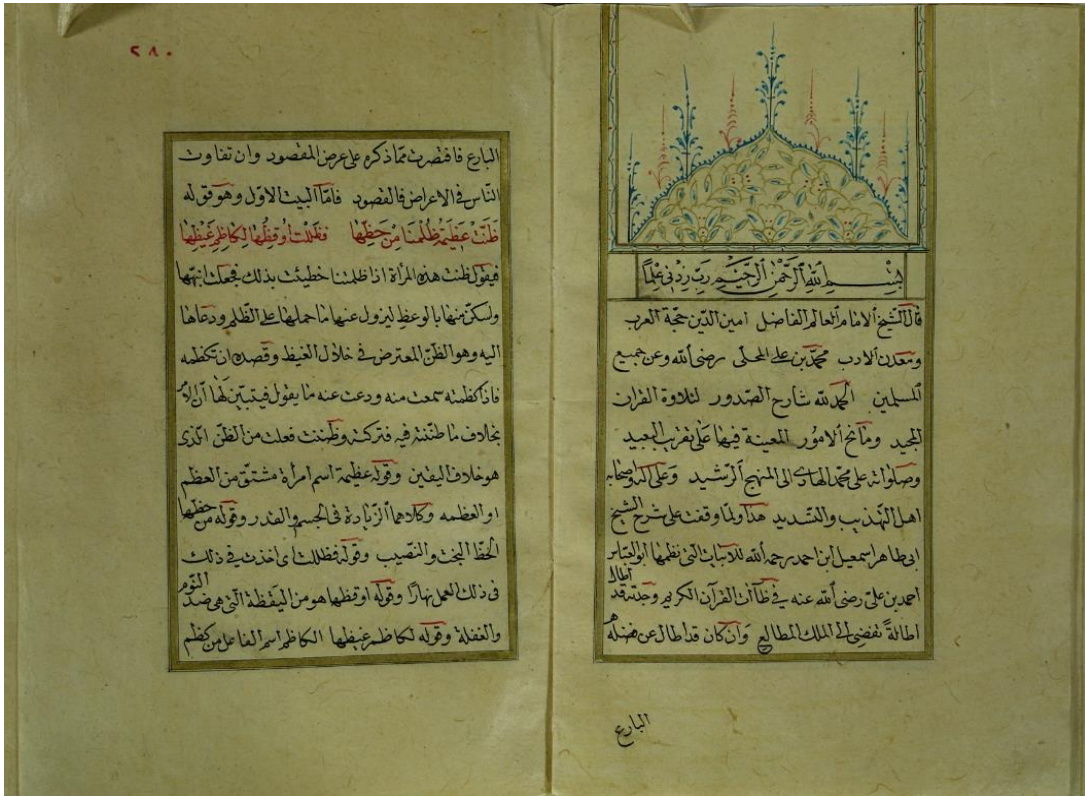 بسم الله الرحمن الرحيم رب زدني علما
قال الشيخ الامام العالم الفاضل امين الدين حجة العرب
ومعدن الادب محمد بن علي المحلى رضى الله وعن جميع
المسلمين الحمد لله شارح الصدور لتلاوة القران
المجيد ومانح الامور المعينة فيها على تقريب البعيد
وصلواته على محمد الهادى الى المنهج الرشيد وعلى اله واصحابه
اهل التهذيب والتسديد هذا ولما وقفت على شرح الشيخ
ابى طاهر اسمعيل ابن احمد رحمه الله للابيات التى نظمها ابو العباس
احمد بن على رضى الله عنه في ظاآت القرآن الكريم وجدته قد اطال
اطالةً تفضى الى الملك المطالع وان كان قد اطال عن فضله
البارع
٢٨٠
البارع فاقتصرت مما ذكره على عرض المقصود وان تفاوت
الناس في الاعراض فالمقصود فاما البيت الاول وهو قوله
ظنت عظيمة ظلمنا من حظها فظللت اوقظها لكاظم غيظها
فيقول ظنت هذه المرأة اذا ظلمتنا خطيئت بذلك فجعلت انبهها
ولسكن منها بالوعظ ليزول عنها ما حملها على الظلم ودعاها
اليه وهو الظن المعترض في خلال الغيظ وقصده ان تكظمه
فاذا كظمته سمعت منه ودعت عنه ما يقول فيتبين لها ان الامر
بخلاف ما ظننته فيه فتركته وظننت فعلت من الظن الذى
هو خلاف اليقين وقوله عظيمة اسم امرأة مشتق من العظم
او العظمه وكلاهما الزيادة فى الجسم والقدر وقوله من حظها
الحظ البخت والنصيب وقوله فظللت اى اخذت في ذلك
فى ذلك العمل نهارًا وقوله اوقظها هو من اليقظة التى هى ضد النوم
والغفلة وقوله لكاظم غيظها الكاظم اسم الفاعل من كظم